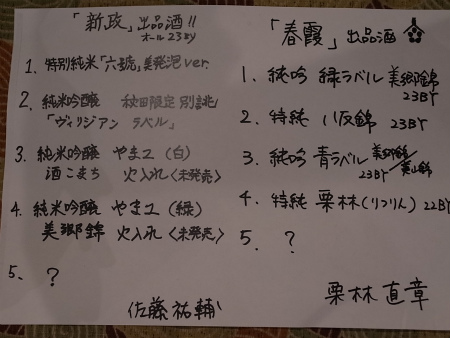 「新政」出品酒!!
オール23BY
1. 特別純米「六號」美発泡ver.
2. 純米吟醸 秋田限定別誂
「ヴィリジアン ラベル」
3. 純米吟醸 やまユ(白)
酒こまち 火入れ〈未発売〉
4. 純米吟醸 やまユ(緑)
美郷錦 火入れ〈未発売〉
5. ?
佐藤祐輔
「春霞」出品酒
1. 純吟 緑ラベル 美郷錦
23BY
2. 特純 八反錦 23BY
3. 純吟 青ラベル 美郷錦/美山錦
23BY
4. 特純 栗林(りつりん) 22BY
5. ?
栗林直章